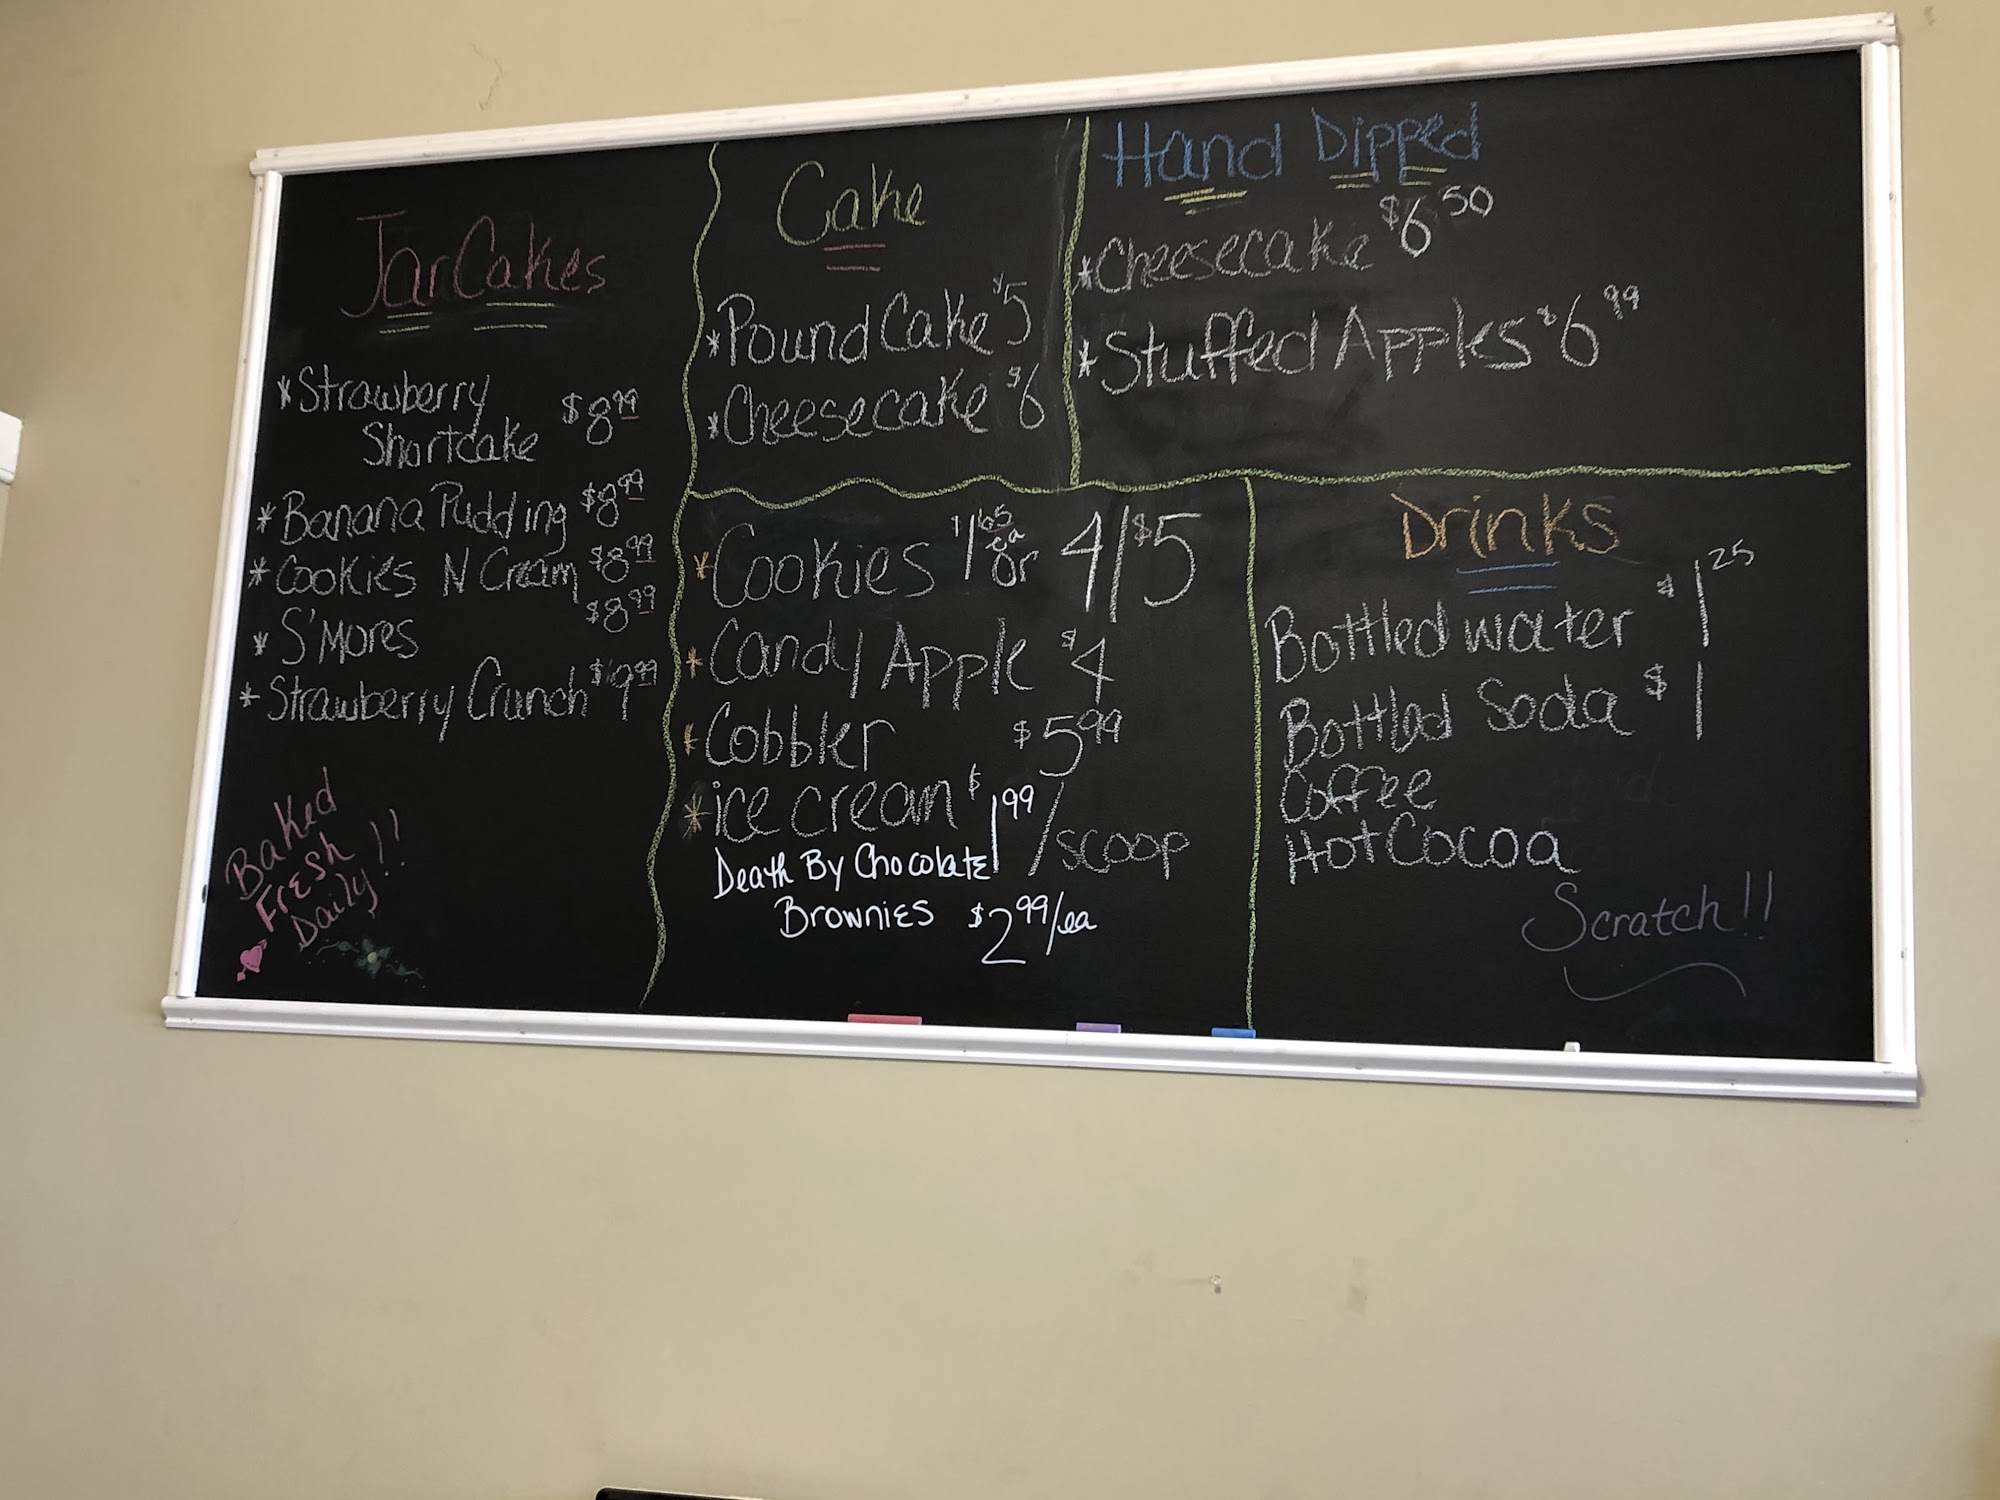 JarCakes
*Strawberry
Shortcake $8.99
*Banana Pudding $8.99
*Cookies N Cream $8.99
*S'mores $8.99
*Strawberry Crunch $9.99
Baked
Fresh
Daily!!
Cake
*Pound Cake $5
*Cheesecake $6
Hand Dipped
*Cheesecake $6.50
*Stuffed Apples $6.99
*Cookies $1.65 ea or 4/$5
*Candy Apple $4
*Cobbler $5.99
*ice cream $1.99/scoop
Death By Chocolate
Brownies $2.99/ea
Drinks
Bottled water $1.25
Bottled Soda $1
Coffee
Hot Cocoa
Scratch!!